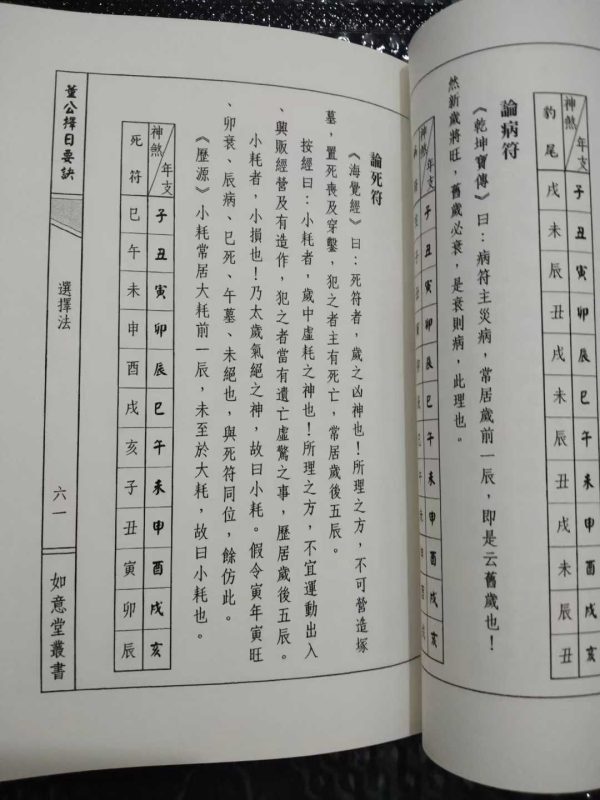 神煞 年支 子 丑 寅 卯 辰 巳 午 未 申 酉 戌 亥
豹尾 戌 未 辰 丑 戌 未 辰 丑 戌 未 辰 丑
論病符
《乾坤寶傳》曰：病符主災病，常居歲前一辰，即是云舊歲也！
然新歲將旺，舊歲必衰，是衰則病，此理也。
神煞 年支 子 丑 寅 卯 辰 巳 午 未 申 酉 戌 亥
論死符
《海覺經》曰：死符者，歲之凶神也！所理之方，不可營造塚
墓，置死喪及穿鑿，犯之者主有死亡，常居歲後五辰。
按經曰：小耗者，歲中虛耗之神也！所理之方，不宜運動出入
、興販經營及有造作，犯之者當有遺亡虛驚之事，歷居歲後五辰。
小耗者，小損也！乃太歲氣絕之神，故曰小耗。假令寅年寅旺
、卯衰、辰病、巳死、午墓、未絕也，與死符同位，餘仿此。
《歷源》小耗常居大耗前一辰，未至於大耗，故曰小耗也。
神煞 年支 子 丑 寅 卯 辰 巳 午 未 申 酉 戌 亥
死符 巳 午 未 申 酉 戌 亥 子 丑 寅 卯 辰
董公擇日要訣
選擇法
六一
如意堂叢書